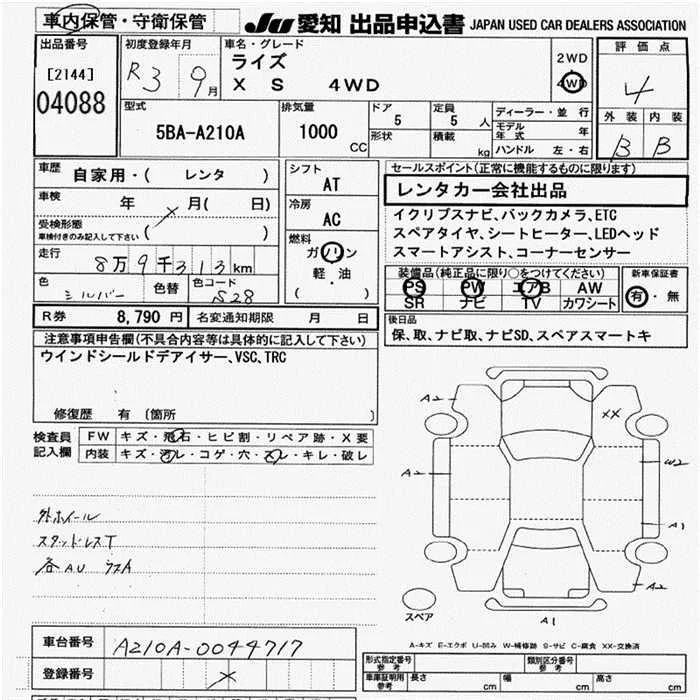 車内保管・守衛保管
JU 愛知 出品申込書 JAPAN USED CAR DEALERS ASSOCIATION
出品番号
[2144]
04088
初度登録年月
R3 9月
車名・グレード
ライズ
X S 4WD
2WD
4WD
評価点
4
外装 内装
B B
型式
5BA-A210A
排気量
1000
CC
ドア
5
形状
定員
5 人
積載
kg
ディーラー・並行
モデル年式 年
ハンドル 左・右
車歴
自家用・( レンタ )
車検
年 月( 日)
受検形態
車検付きのみ記入して下さい ( )
走行
8万9千313km
色
シルバー
色替
色コード
S28
シフト
AT
冷房
AC
燃料
ガソリン
軽・油
( )
セールスポイント(正常に機能するものに限ります)
レンタカー会社出品
イクリプスナビ、バックカメラ、ETC
スペアタイヤ、シートヒーター、LEDヘッド
スマートアシスト、コーナーセンサー
装備品(純正品に限り○をつけてください)
PS PW エアB AW
SR ナビ TV カワシート
新車保証書
有・無
R券 8,790 円
名変通知期限 月 日
後日品
保、取、ナビ取、ナビSD、スペアスマートキ
注意事項申告欄(不具合内容等は具体的に記入して下さい)
ウインドシールドデアイサー、VSC,TRC
修復歴 有 〔箇所 〕
検査員
記入欄
FW キズ・飛石・ヒビ割・リペア跡・X要
内装 キズ・汚レ・コゲ・穴・スレ・キレ・破レ
外ホイール
スタッドレスT
各AU
A2
XX
A2
W2
A1
A2
A1
スペア
A-キズ E-エクボ U-凹み W-補修跡 S-サビ C-腐食 XX-交換済
車台番号
A210A-0044717
登録番号
形式指定番号
参考
類別区分番号
参考
車庫証明用
参考
長さ cm
幅 cm
高さ cm